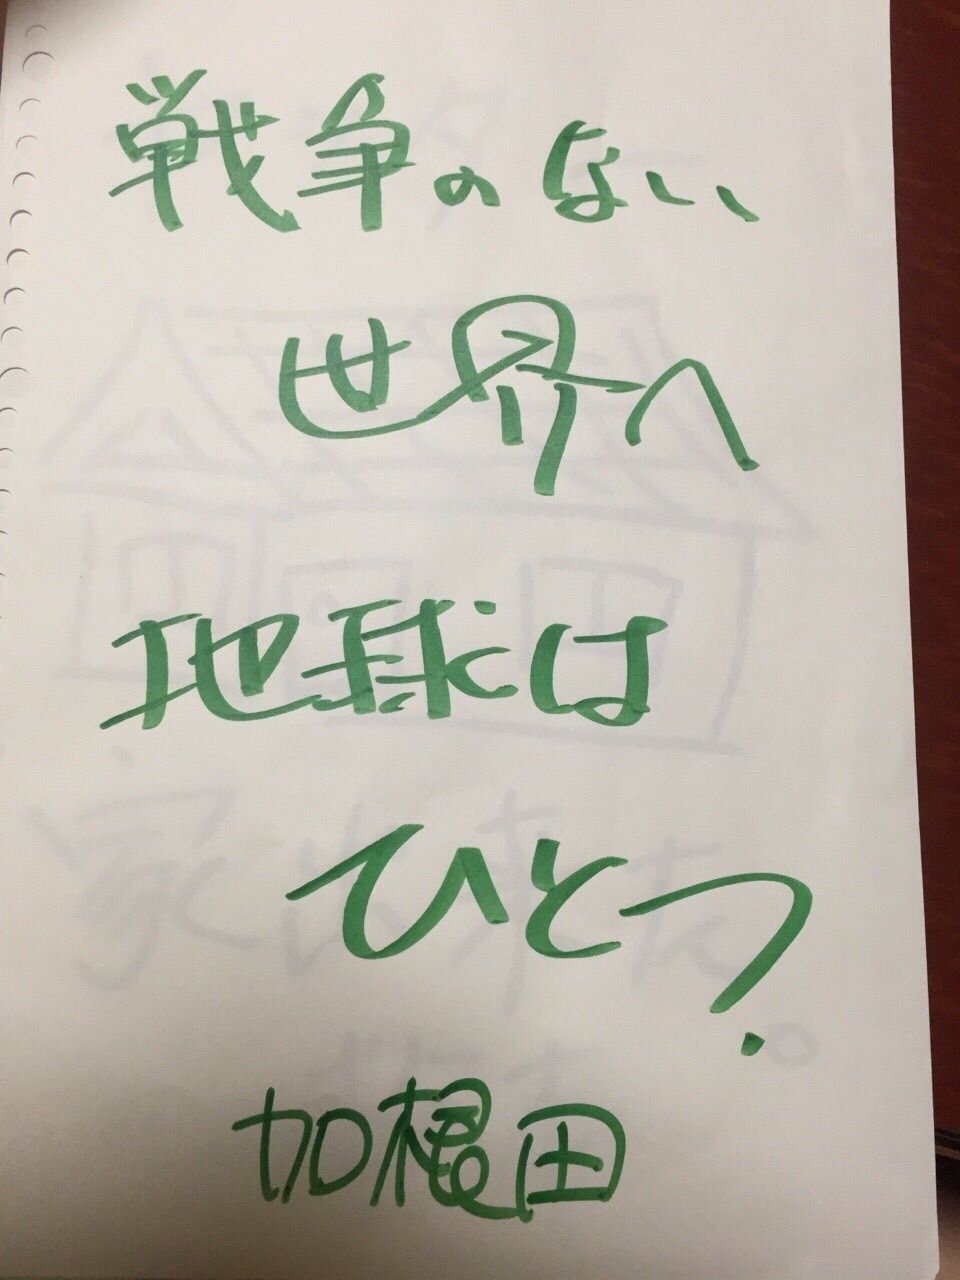 戦争のない
世界へ
地球は
ひとつ.
加根田